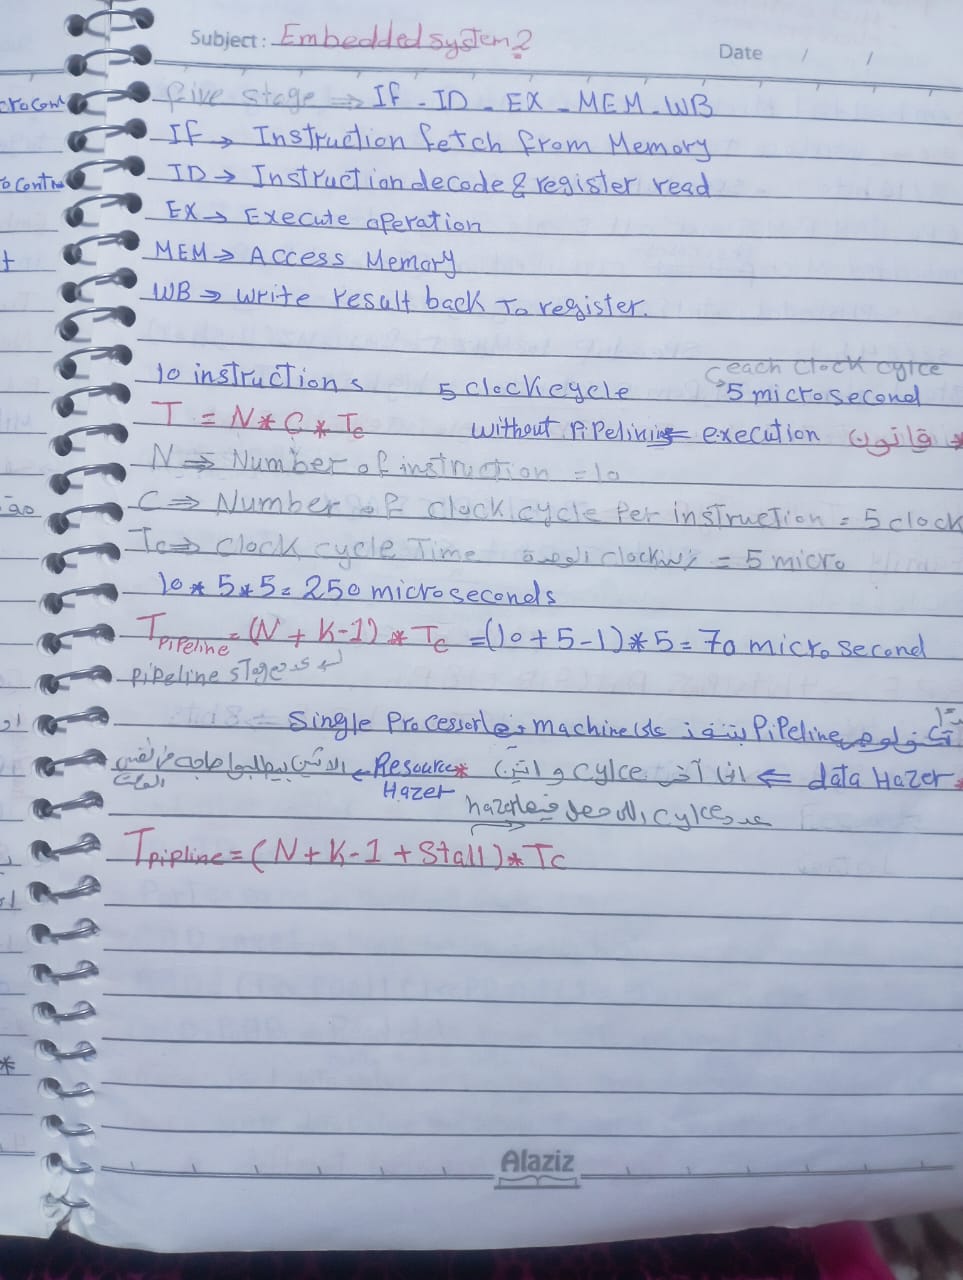 Subject: Embedded system 2
Date / /
five stage ⇒ IF - ID - EX - MEM - WB
IF → Instruction fetch from Memory
ID → Instruction decode & register read
EX → Execute operation
MEM → Access Memory
WB → write result back To register.
each clock cylce
10 instructions 5 clock cycle 5 microsecond
T = N * C * Tc without Pipelining execution قانون *
N ⇒ Number of instruction = 10
C ⇒ Number of clock cycle Per instruction = 5 clock
Tc ⇒ clock cycle Time clock = 5 micro
10 * 5 * 5 = 250 microseconds
Tpipeline = (N + K - 1) * Tc = (10 + 5 - 1) * 5 = 70 micro second
pipeline stage
Pipeline machine single Processor
data Hazer ⇐ cylce * Resource
Hazer
cylce hazer
Tpipline = (N + K - 1 + Stall) * Tc
Alaziz